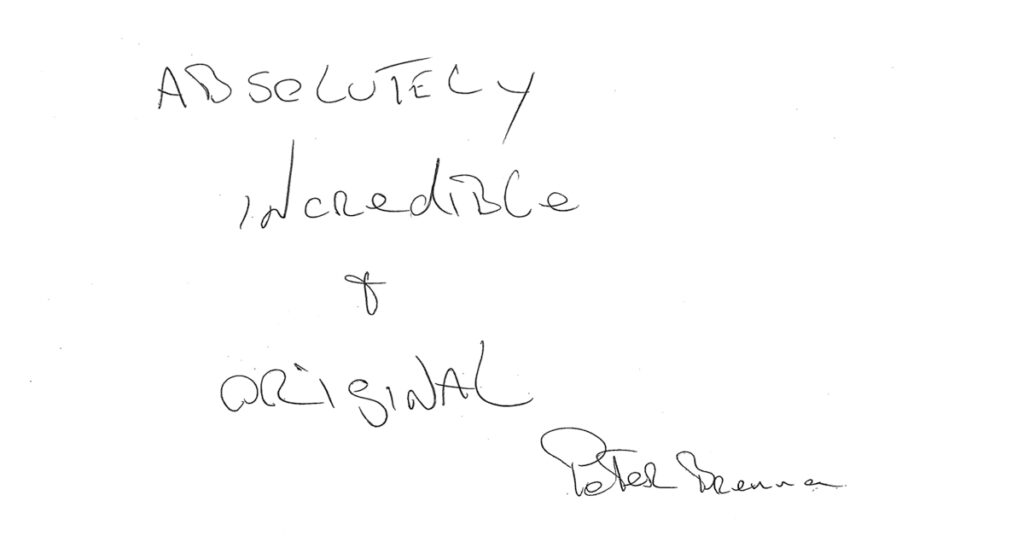 ABSOLUTELY
INCREDIBLE
&
ORIGINAL
Peter Brennan